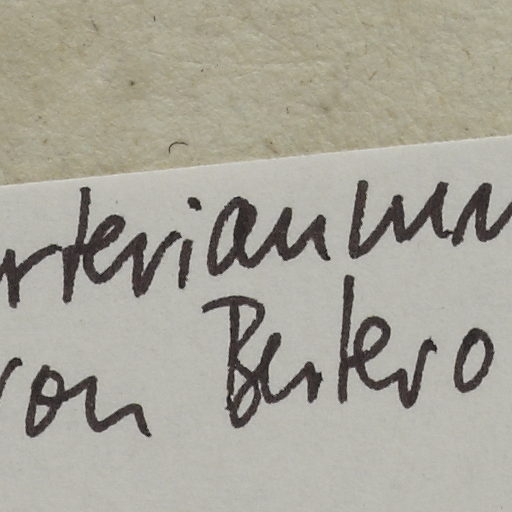 rterianum
von Bertero